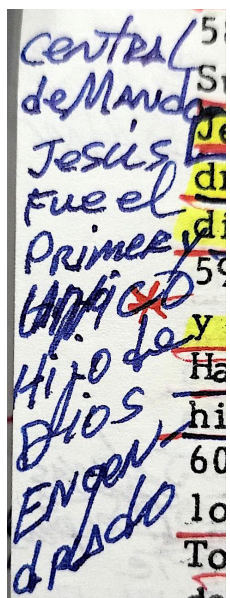 CENTRAL
de MANDO
Jesús
Fue el
Primer y
HiJo de
Dios
ENGEN
drado
58
Je
dr
di
59
y
Ha
hi
60
lo
To